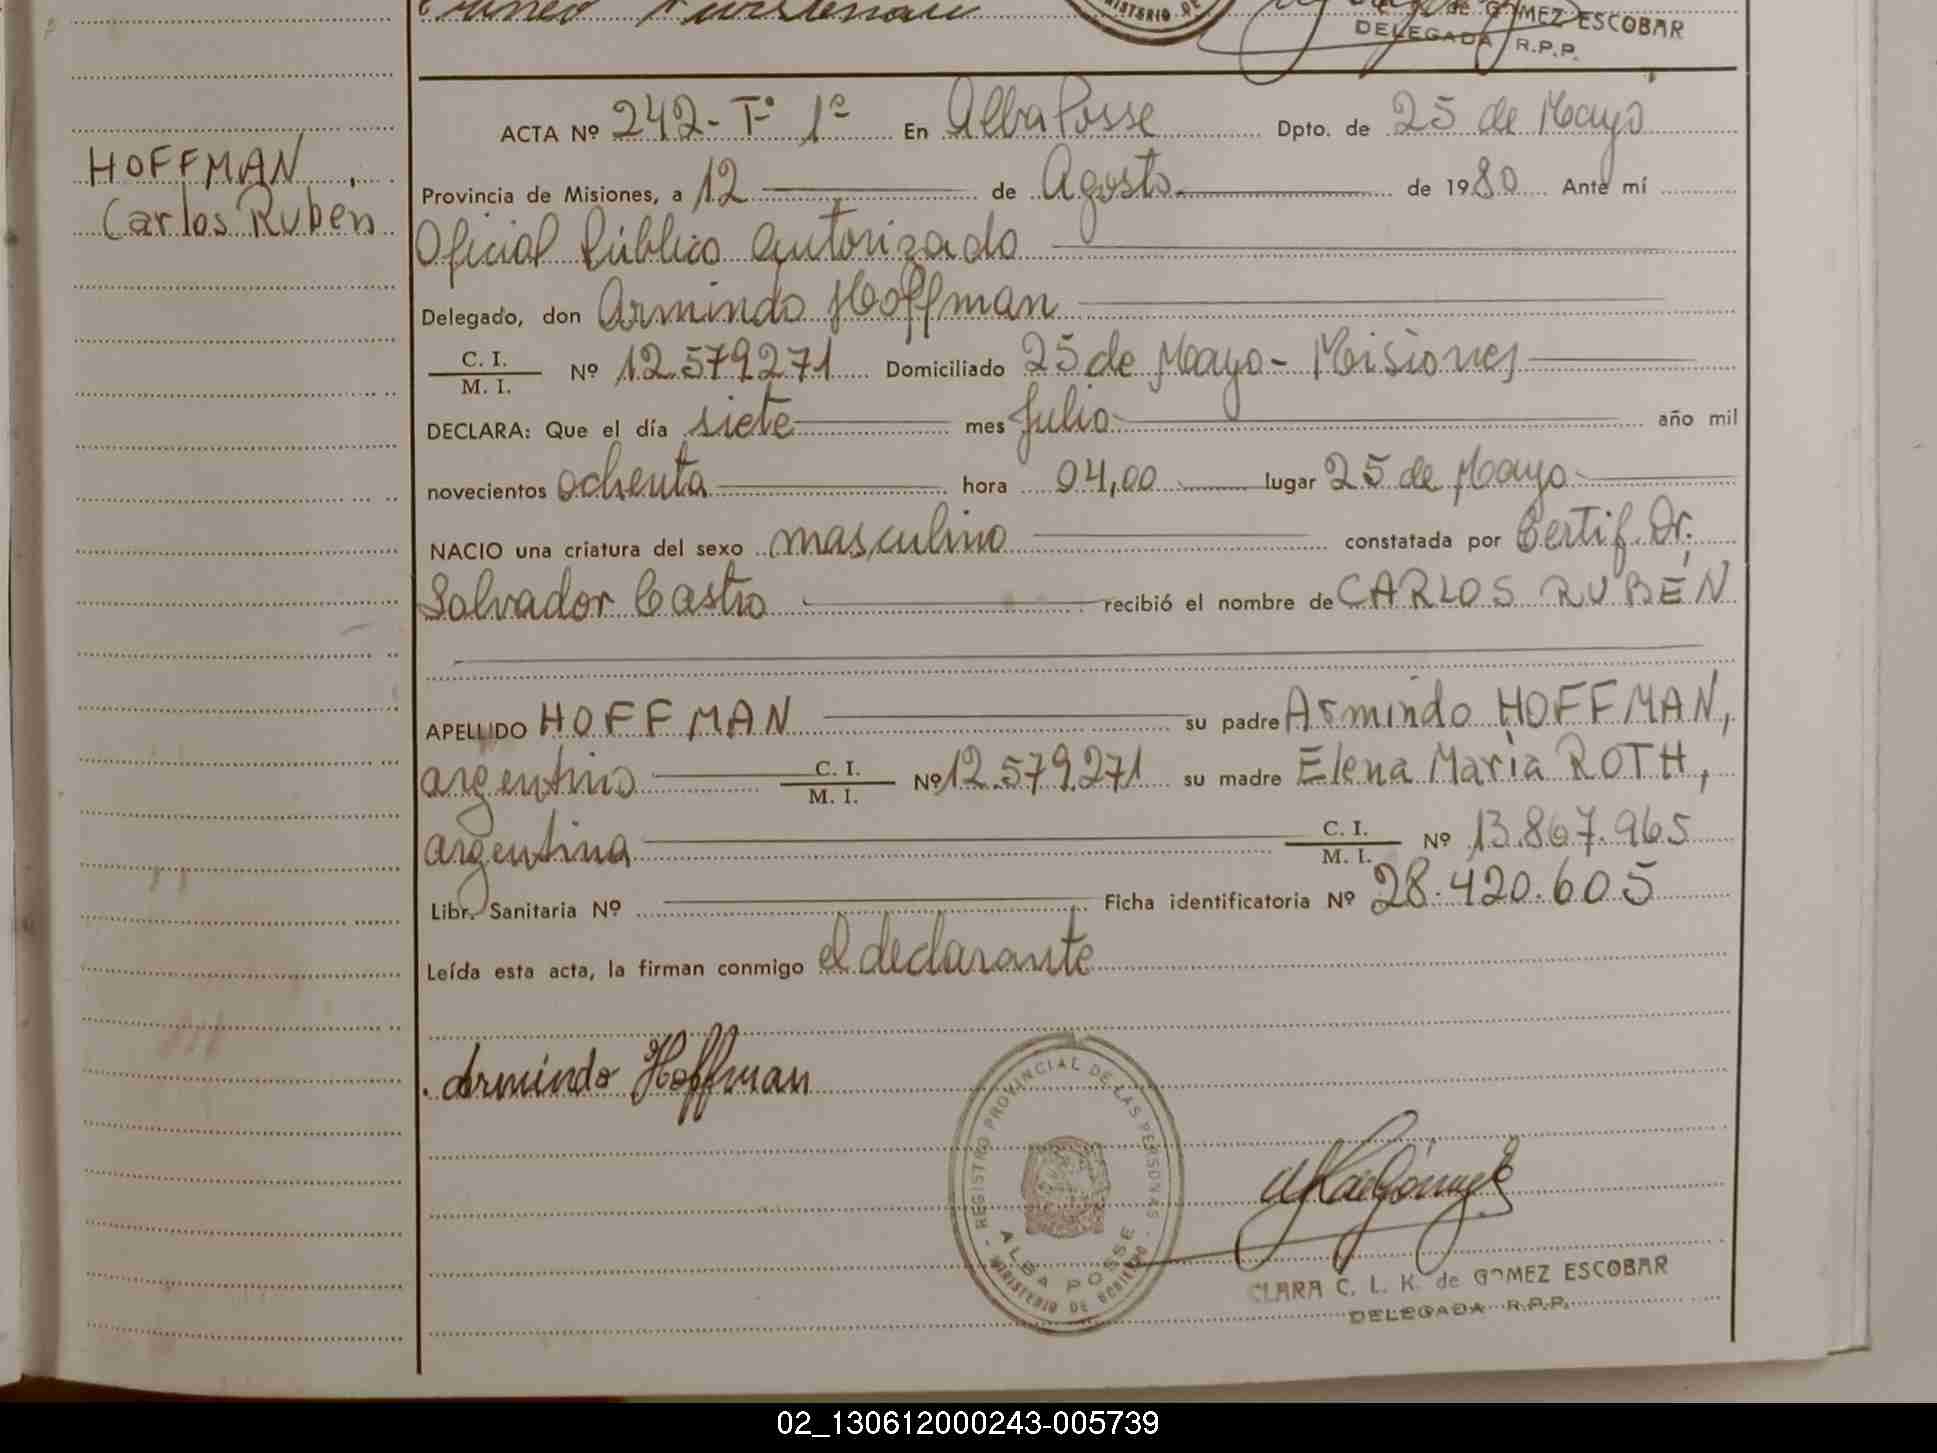 de GOMEZ ESCOBAR
DELEGADA R.P.P.
HOFFMAN,
Carlos Ruben
ACTA Nº 242- Tº 1º En Alba Posse Dpto. de 25 de Mayo
Provincia de Misiones, a 12 de Agosto de 1980 Ante mí
Oficial Público Autorizado
Delegado, don Armindo Hoffman
C. I.
M. I. Nº 12.579271 Domiciliado 25 de Mayo- Misiones
DECLARA: Que el día siete mes Julio año mil
novecientos ochenta hora 04,00 lugar 25 de Mayo
NACIO una criatura del sexo masculino constatada por Certif. Dr,
Salvador Castro recibió el nombre de CARLOS RUBÉN
APELLIDO HOFFMAN su padre Armindo HOFFMAN,
argentino C. I.
M. I. Nº 12.579.271 su madre Elena Maria ROTH,
argentina C. I.
M. I. Nº 13.867.965
Libr. Sanitaria Nº Ficha identificatoria Nº 28.420.605
Leída esta acta, la firman conmigo el declarante
Armindo Hoffman
REGISTRO PROVINCIAL DE LAS PERSONAS
ALBA POSSE
MINISTERIO DE GOBIERNO
CLARA C. L. K. de GOMEZ ESCOBAR
DELEGADA R.P.P.
02_130612000243-005739